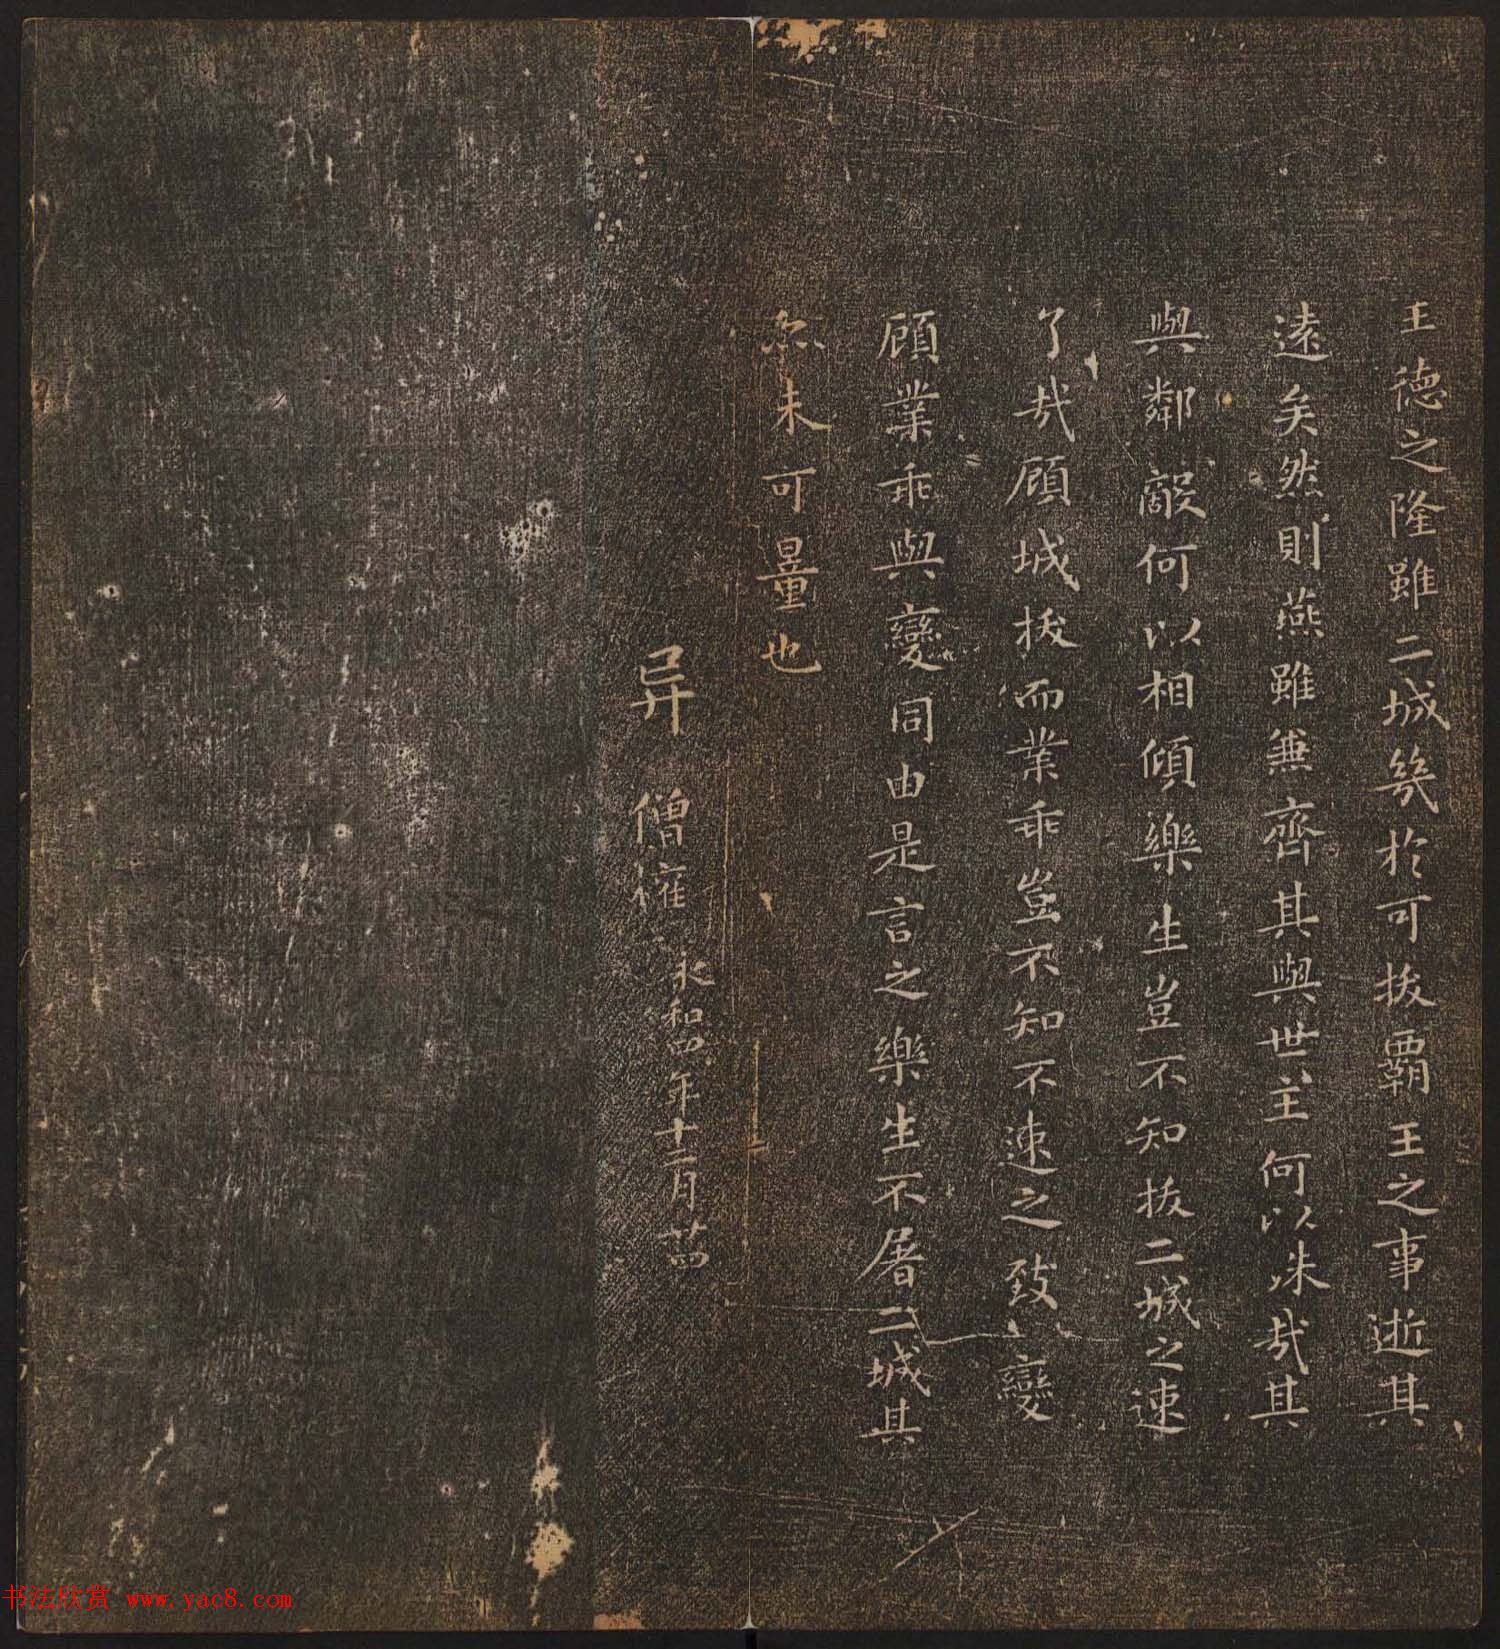 王德之隆雖二城幾於可拔霸王之事逝其
遠矣然則燕雖兼齊其與世主何以殊哉其
與鄰敵何以相傾樂生豈不知拔二城之速
了哉顧城拔而業乖豈不知不速之致變
顧業乖與變同由是言之樂生不屠二城其
亦未可量也
异 僧權 永和四年十二月廿四
书法欣赏 www.yac8.com